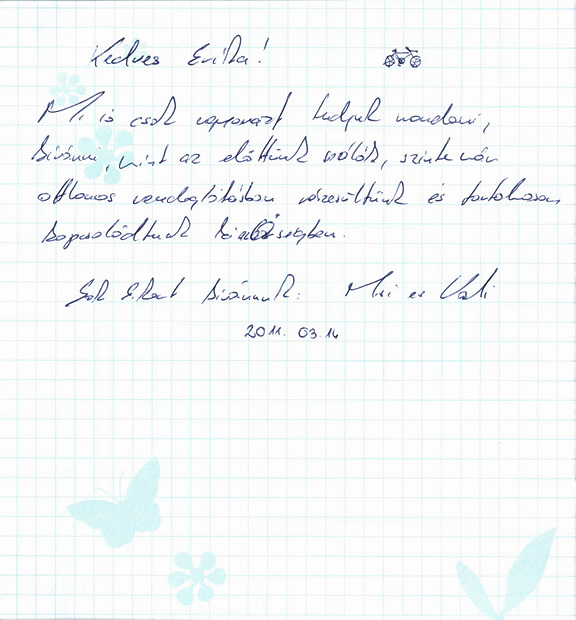 Kedves Erika!
Mi is csak ugyanazt tudjuk mondani,
kívánni, mint az előttünk szólók, szinte már
otthonos vendéglátásban részesültünk és tartalmasan
kapcsolódtunk ki
Sok sikert kívánunk: Misi és Kati
2011. 03. 14